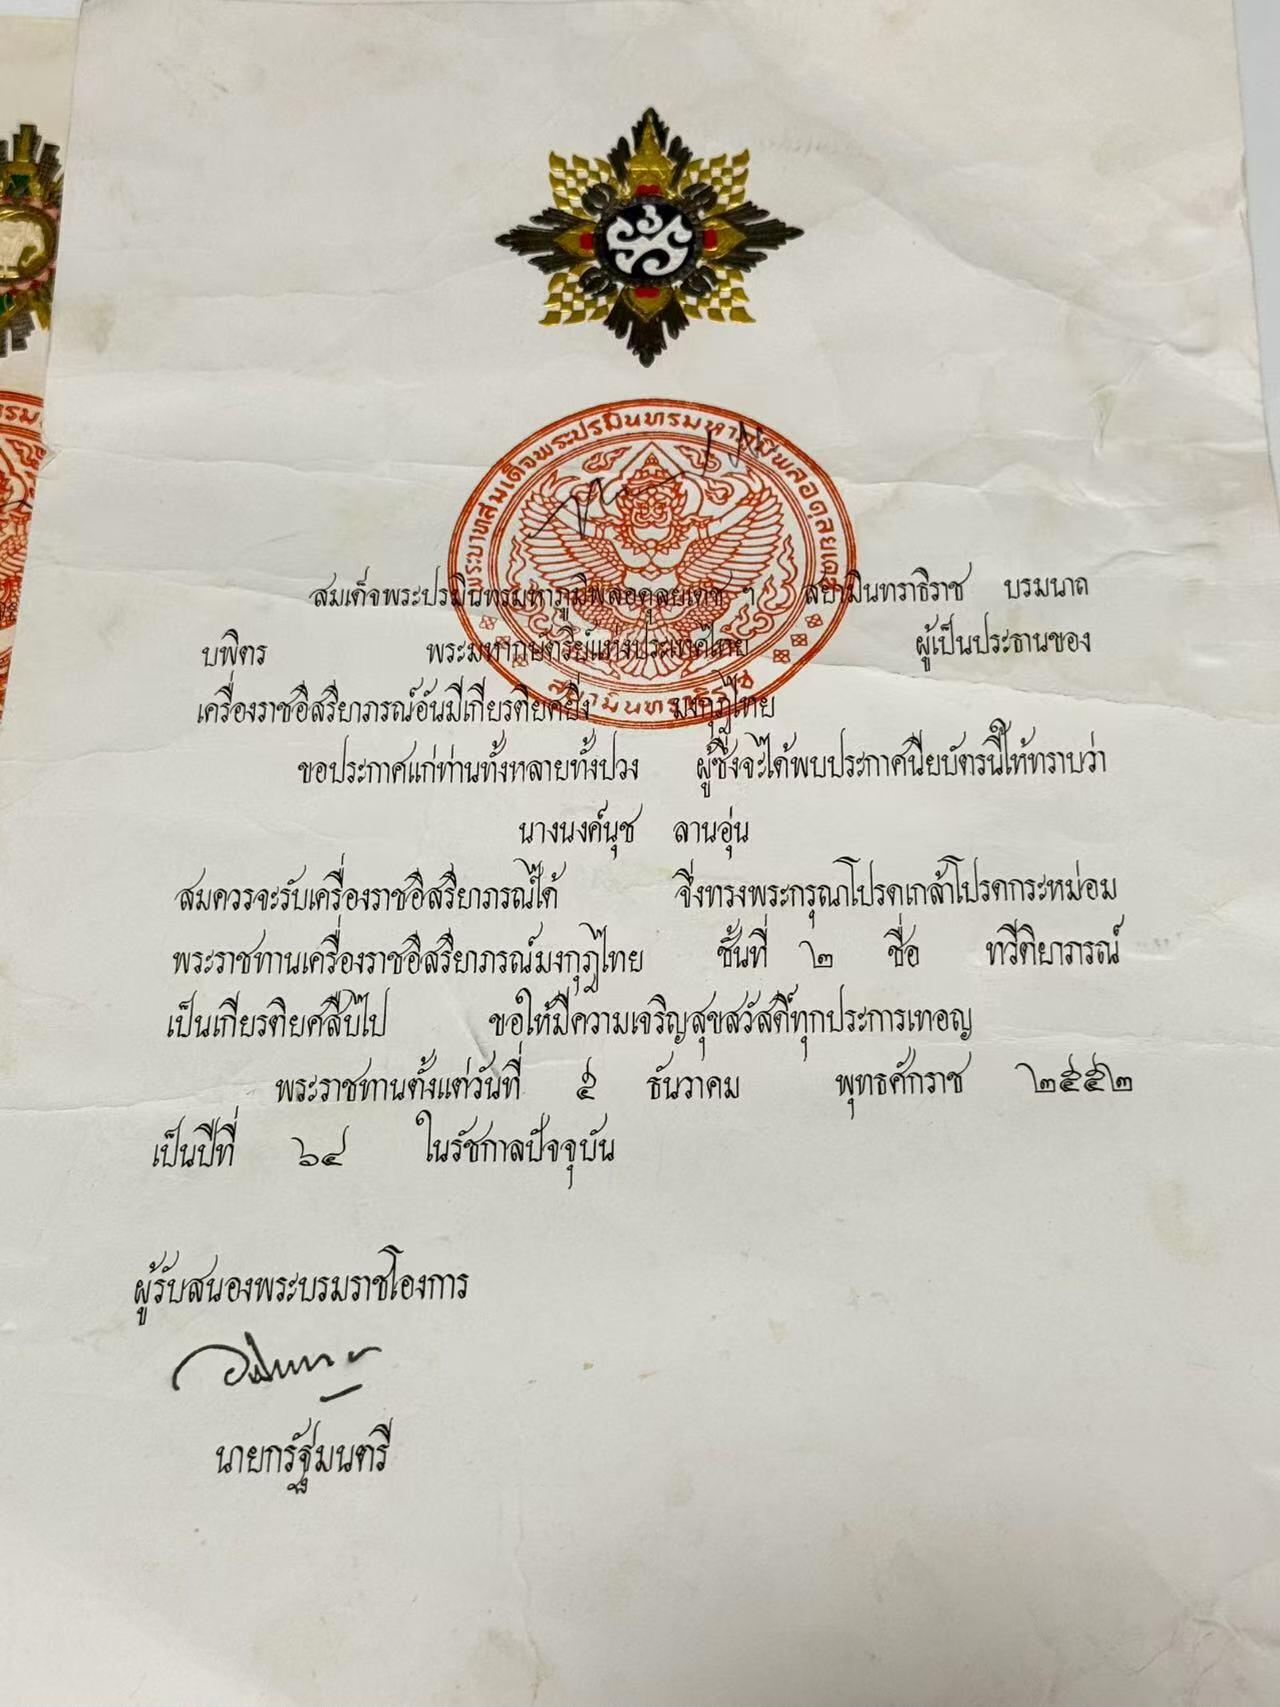 พระบาทสมเด็จพระปรมินทรมหาภูมิพลอดุลยเดช
สยามินทราธิราช
สมเด็จพระปรมินทรมหาภูมิพลอดุลยเดช ฯ สยามินทราธิราช บรมนาถ
บพิตร พระมหากษัตริย์แห่งประเทศไทย ผู้เป็นประธานของ
เครื่องราชอิสริยาภรณ์อันมีเกียรติยศยิ่ง มงกุฎไทย
ขอประกาศแก่ท่านทั้งหลายทั้งปวง ผู้ซึ่งจะได้พบประกาศนียบัตรนี้ให้ทราบว่า
นางนงค์นุช ลานอุ่น
สมควรจะรับเครื่องราชอิสริยาภรณ์ได้ จึ่งทรงพระกรุณาโปรดเกล้าโปรดกระหม่อม
พระราชทานเครื่องราชอิสริยาภรณ์มงกุฎไทย ชั้นที่ ๒ ชื่อ ทวีติยาภรณ์
เป็นเกียรติยศสืบไป ขอให้มีความเจริญสุขสวัสดิ์ทุกประการเทอญ
พระราชทานตั้งแต่วันที่ ๕ ธันวาคม พุทธศักราช ๒๕๕๒
เป็นปีที่ ๖๔ ในรัชกาลปัจจุบัน
ผู้รับสนองพระบรมราชโองการ
นายกรัฐมนตรี